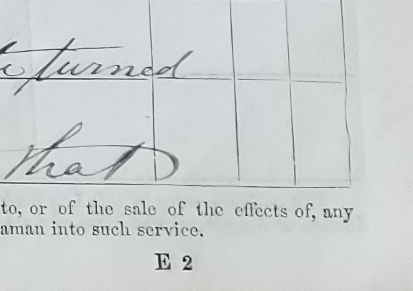 turned
that
to, or of the sale of the effects of, any
aman into such service.
E 2